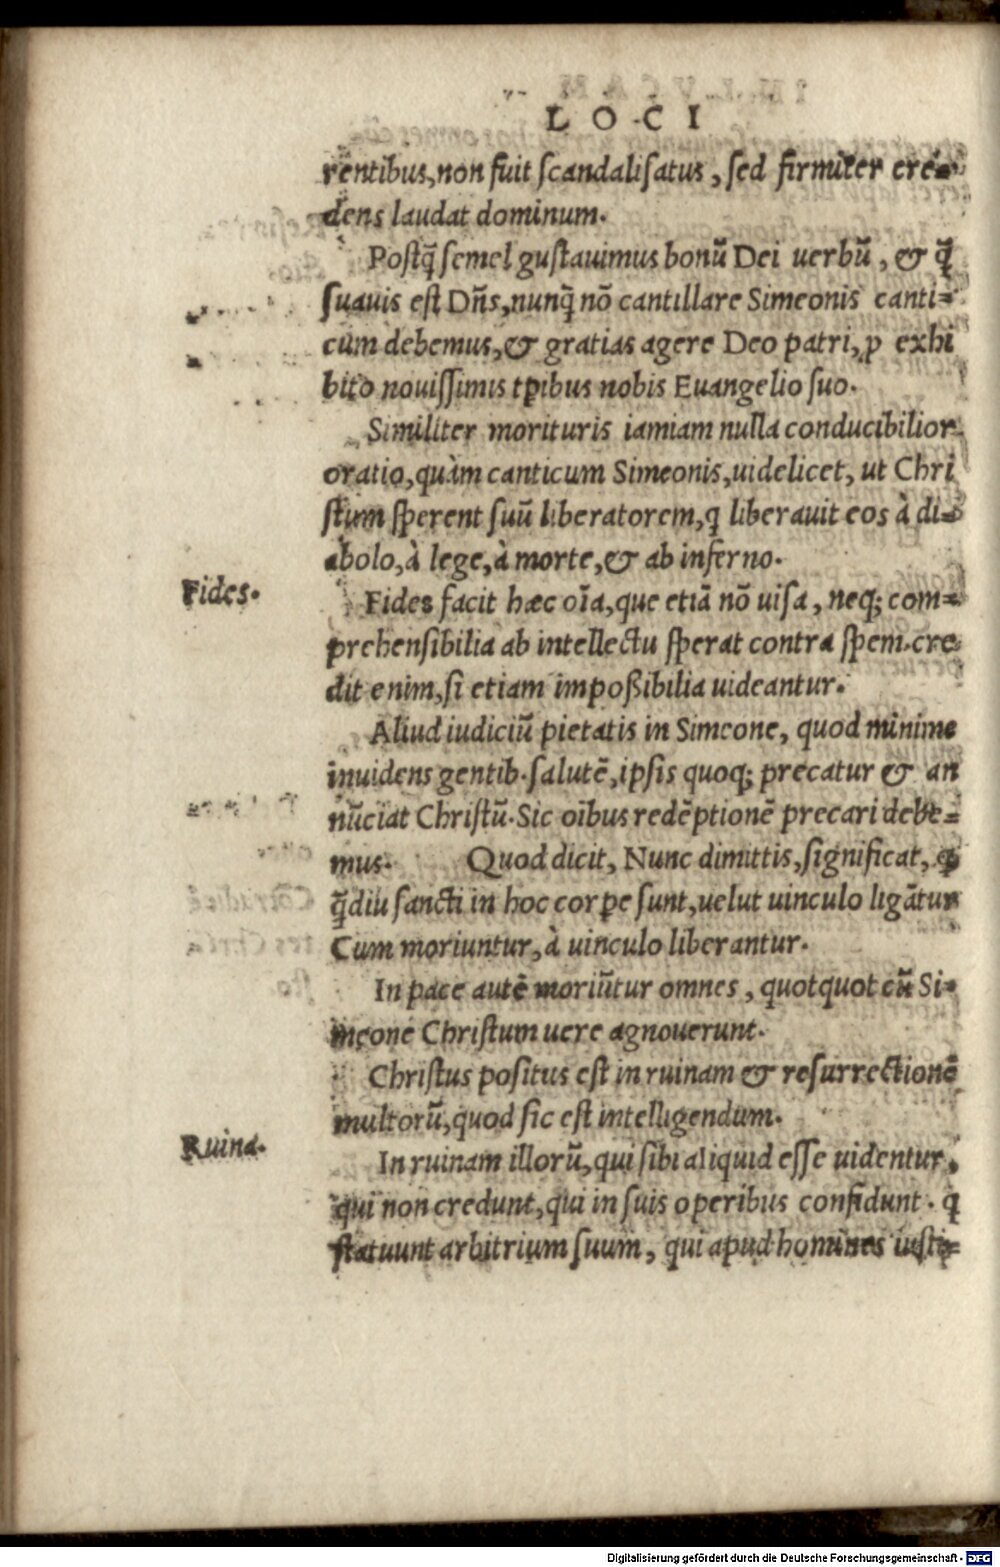 LOCI
rentibus, non fuit scandalisatus, sed firmiter cre-
dens laudat dominum.
Postq̃ semel gustauimus bonũ Dei uerbũ, & q̃
suauis est Dñs, nunq̃ nõ cantillare Simeonis canti=
cum debemus, & gratias agere Deo patri, ꝓ exhi
bito nouissimis tꝑibus nobis Euangelio suo.
Similiter morituris iamiam nulla conducibilior
oratio, quàm canticum Simeonis, uidelicet, ut Chri
stum sperent suũ liberatorem, q̃ liberauit eos à di=
abolo, à lege, à morte, & ab inferno.
Fides.
Fides facit hæc oĩa, que etiã nõ uisa, neq; com=
prehensibilia ab intellectu sperat contra spem. cre
dit enim, si etiam impoßibilia uideantur.
Aliud iudiciũ pietatis in Simeone, quod minime
inuidens gentib. salutẽ, ipsis quoq; precatur & an
nũciat Christũ. Sic oĩbus redẽptionẽ precari debe=
mus. Quod dicit, Nunc dimittis, significat, ꝙ
q̃diu sancti in hoc corꝑe sunt, uelut uinculo ligãtur
Cum moriuntur, à uinculo liberantur.
In pace autẽ moriũtur omnes, quotquot cũ Si=
meone Christum uere agnouerunt.
Christus positus est in ruinam & resurrectionẽ
multorũ, quod sic est intelligendum.
Ruina.
In ruinam illorũ, qui sibi aliquid esse uidentur,
qui non credunt, qui in suis operibus confidunt. q̃
statuunt arbitrium suum, qui apud homines iusti=
Digitalisierung gefördert durch die Deutsche Forschungsgemeinschaft - DFG